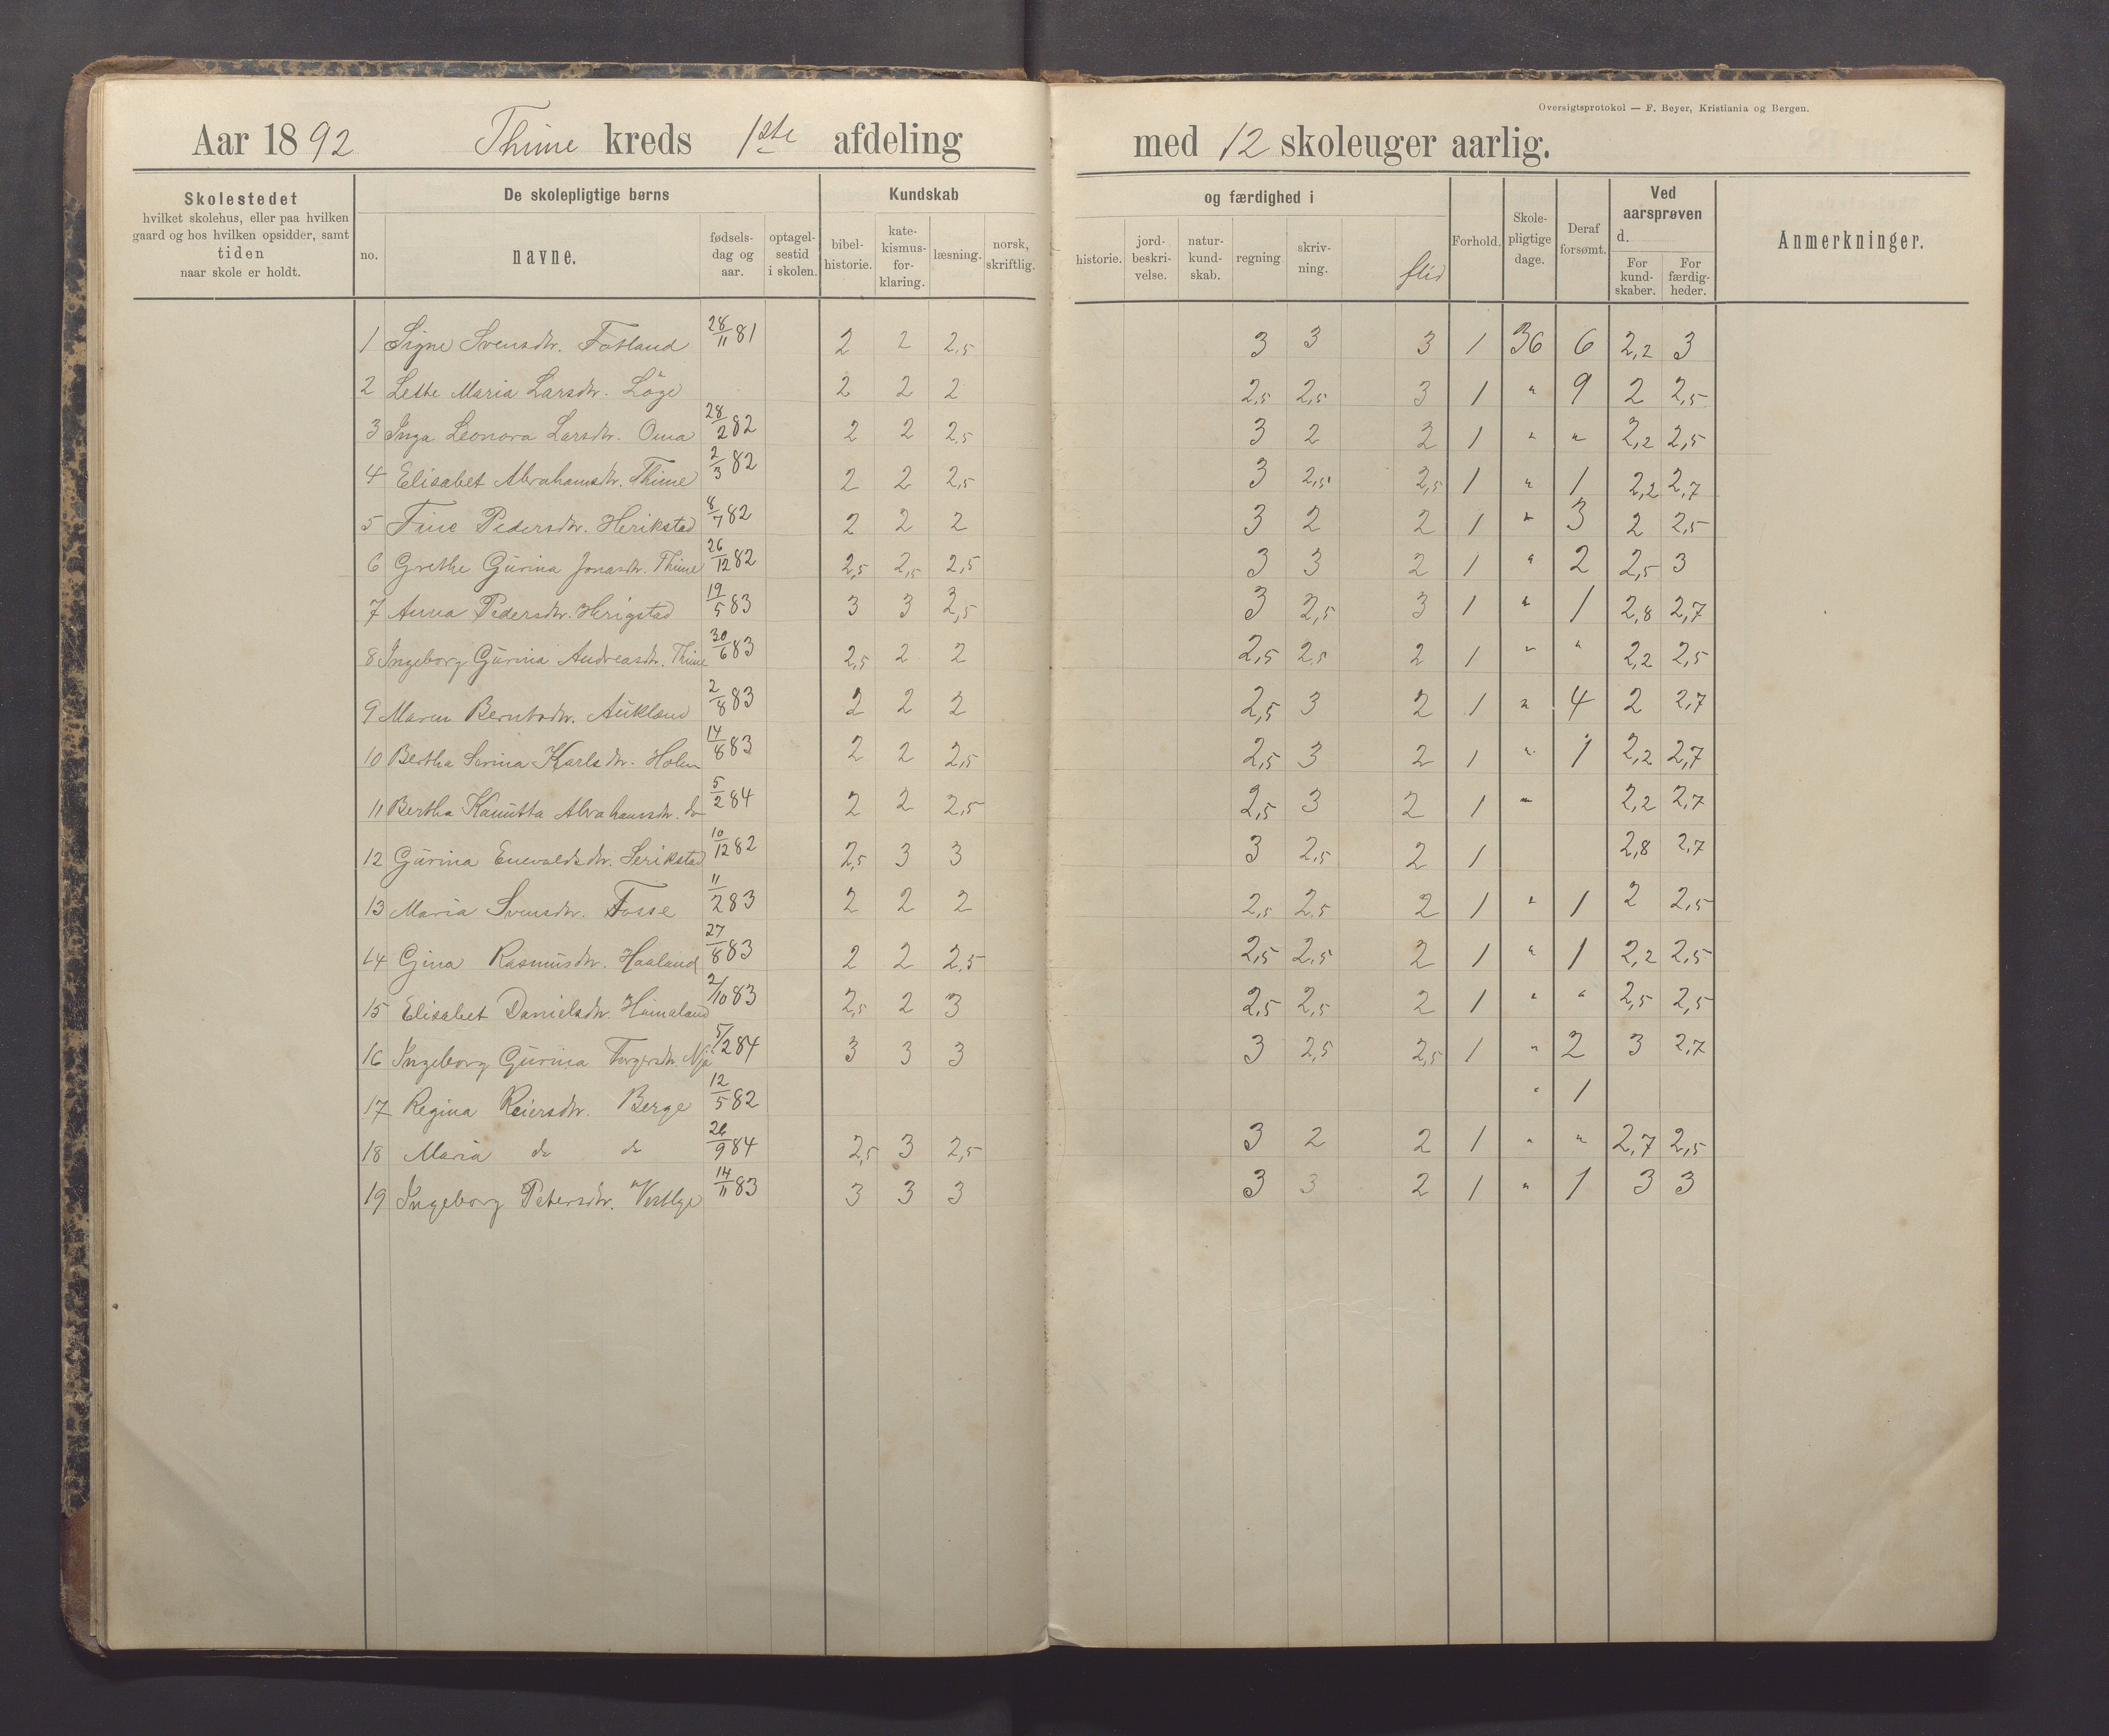 Oversigtsprotokol — F. Beyer, Kristiania og Bergen.
Aar 1892 Thime kreds 1ste afdeling med 12 skoleuger aarlig.
Skolestedet
hvilket skolehus, eller paa hvilken
gaard og hos hvilken opsidder, samt
tiden
naar skole er holdt.
De skolepligtige børns
no. navne. fødsels-dag og aar. optagel-sestid i skolen.
Kundskab og færdighed i
bibel-historie. kate-kismus-for-klaring. læsning. norsk, skriftlig. historie. jord-beskri-velse. natur-kund-skab. regning skriv-ning. flid
Forhold. Skole-pligtige dage. Deraf forsømt.
Ved aarsprøven d.
For kund-skaber. For færdig-heder.
Anmerkninger.
1 Signe Svensdtr. Fotland 28/11 81 2 2 2,5 3 3 3 1 36 6 2,2 3
2 Lethe Maria Larsdtr. Löge 2 2 2 2,5 2,5 3 1 " 9 2 2,5
3 Inga Leonora Larsdtr. Oma 28/2 82 2 2 2,5 3 2 2 1 " " 2,2 2,5
4 Elisabet Abrahamsdtr. Thime 2/3 82 2 2 2,5 3 2,5 2,5 1 " 1 2,2 2,7
5 Tine Pedersdtr. Herikstad 8/7 82 2 2 2 3 2 2 1 " 3 2 2,5
6 Grethe Gurina Jonasdtr. Thime 26/12 82 2,5 2,5 2,5 3 3 2 1 " 2 2,5 3
7 Anna Pedersdtr. Herigstad 19/5 83 3 3 2,5 3 2,5 3 1 " 1 2,8 2,7
8 Ingeborg Gurina Andreasdtr. Thime 30/6 83 2,5 2 2 2,5 2,5 2 1 " " 2,2 2,5
9 Maren Berntsdtr. Aukland 2/8 83 2 2 2 2,5 3 2 1 " 4 2 2,7
10 Bertha Serina Karlsdtr. Holen 14/8 83 2 2 2,5 2,5 3 2 1 " 1 2,2 2,7
11 Bertha Kanutta Abrahamsdtr. do 5/2 84 2 2 2,5 2,5 3 2 1 " 2,2 2,7
12 Gurina Enevaldsdtr. Serikstad 10/12 82 2,5 3 3 3 2,5 2 1 2,8 2,7
13 Maria Svensdtr. Fosse 11/2 83 2 2 2 2,5 2,5 2 1 " 1 2 2,5
14 Gina Rasmusdtr. Haaland 27/8 83 2 2 2,5 2,5 2,5 2 1 " 1 2,2 2,5
15 Elisabet Danielsdtr. Humaland 2/10 83 2,5 2 3 2,5 2,5 2 1 " " 2,5 2,5
16 Ingeborg Gurina Torgersdtr. Njå 5/2 84 3 3 3 3 2,5 2,5 1 " 2 3 2,7
17 Regina Reiersdtr. Berge 12/5 82 " 1
18 Maria do do 26/9 84 2,5 3 2,5 3 2 2 1 " " 2,7 2,5
19 Ingeborg Petersdtr. Vestlye 14/11 83 3 3 3 3 3 2 1 " 1 3 3